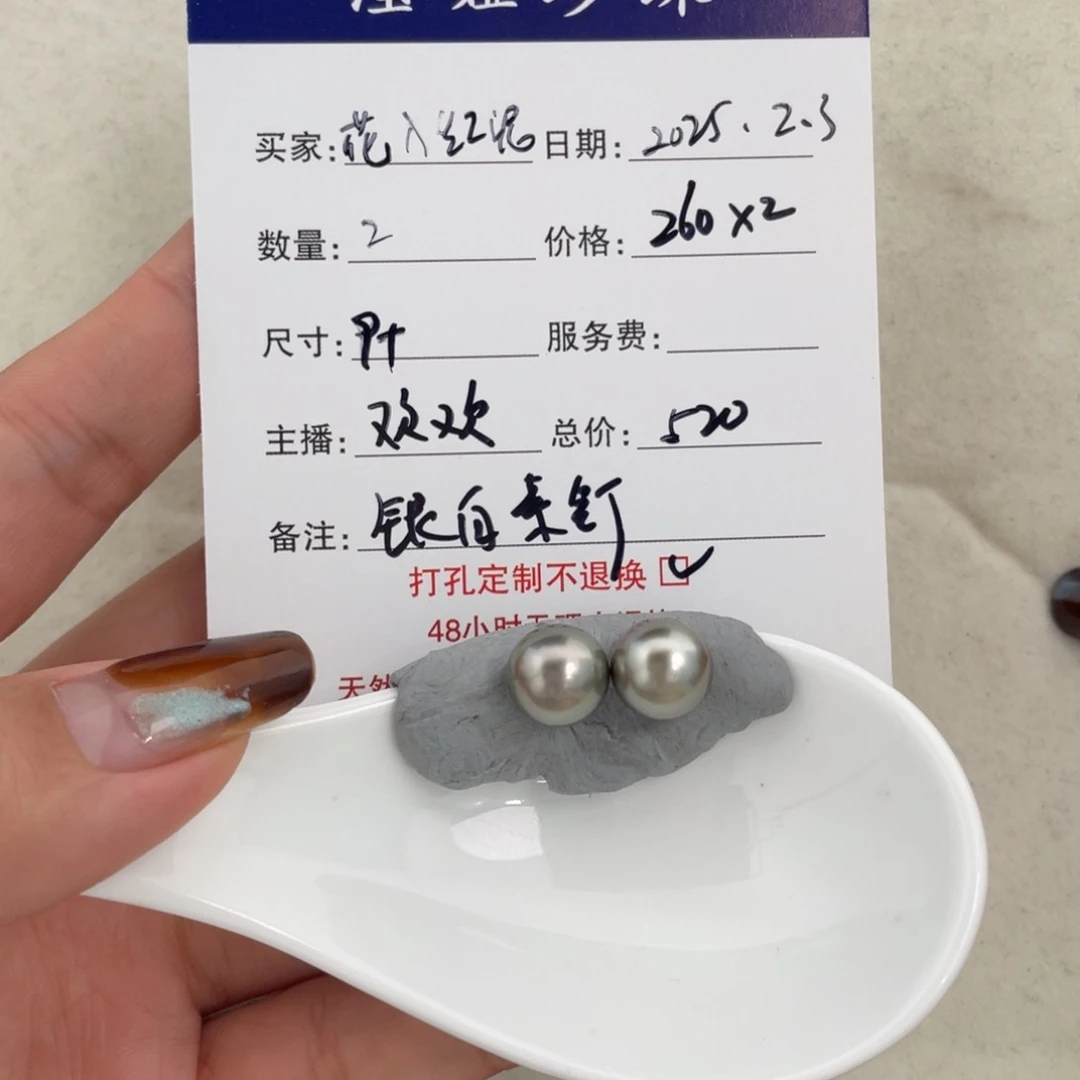 珍珠
买家: 花入红泥 日期: 2025.2.3
数量: 2 价格: 260×2
尺寸: 9+ 服务费:
主播: 欢欢 总价: 520
备注: 银自来钉
打孔定制不退换
48小时
天然